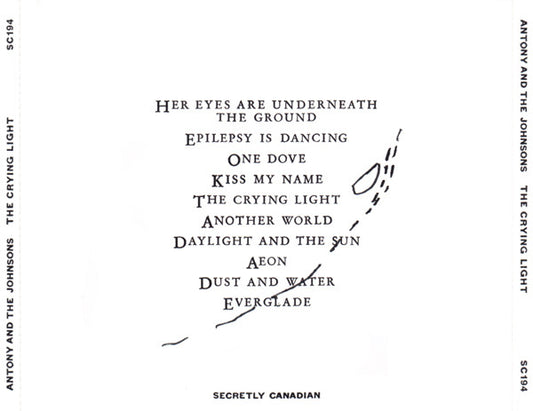 SC194
ANTONY AND THE JOHNSONS THE CRYING LIGHT
HER EYES ARE UNDERNEATH
THE GROUND
EPILEPSY IS DANCING
ONE DOVE
KISS MY NAME
THE CRYING LIGHT
ANOTHER WORLD
DAYLIGHT AND THE SUN
AEON
DUST AND WATER
EVERGLADE
SECRETLY CANADIAN
ANTONY AND THE JOHNSONS THE CRYING LIGHT
SC194